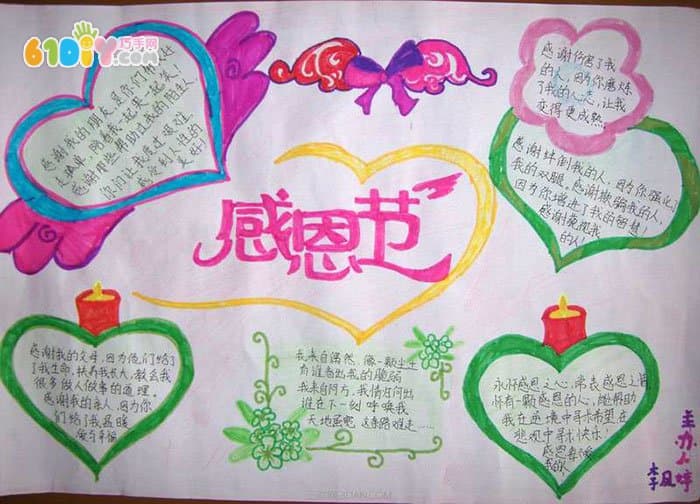 61DIY巧手网
感谢我的朋友,是你们帮我赶
走孤单,陪我一起哭一起笑!
感谢那些帮助过我的陌生人,
你们让我度过艰难,
感受到人性的
美好!
感谢伤害了我
的人,因为你磨炼
了我的心志,让我
变得更成熟。
感谢绊倒我的人,因为你强化了
我的双腿。感谢欺骗我的人,
因为你增进了我的智慧!
感谢藐视我
的人!
感恩节
感谢我的父母,因为他们给
了我生命,抚养我长大,教会我
很多做人做事的道理。
感谢我的亲人,因为你
们给了我温暖
我来自偶然,像一颗尘土
有谁看出我的脆弱
我来自何方,我情归何处
谁在下一刻呼唤我
天地虽宽,这条路难走……
永怀感恩之心,常表感恩之情
怀有一颗感恩的心,能帮助
我在逆境中寻求希望在
悲观中寻求快乐!
主办人
李凤婷